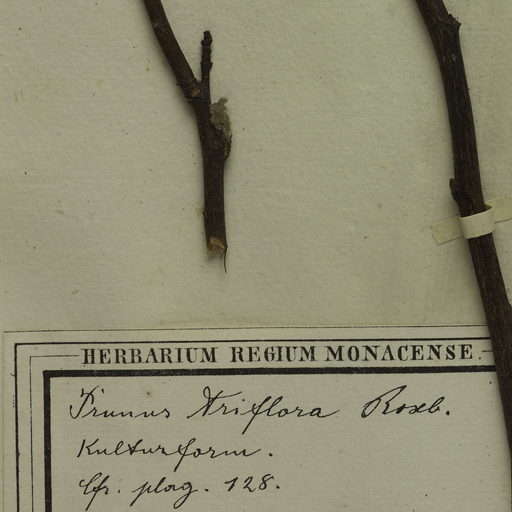 HERBARIUM REGIUM MONACENSE.
Prunus triflora Roxb.
Kulturform.
Cfr. plag. 128.